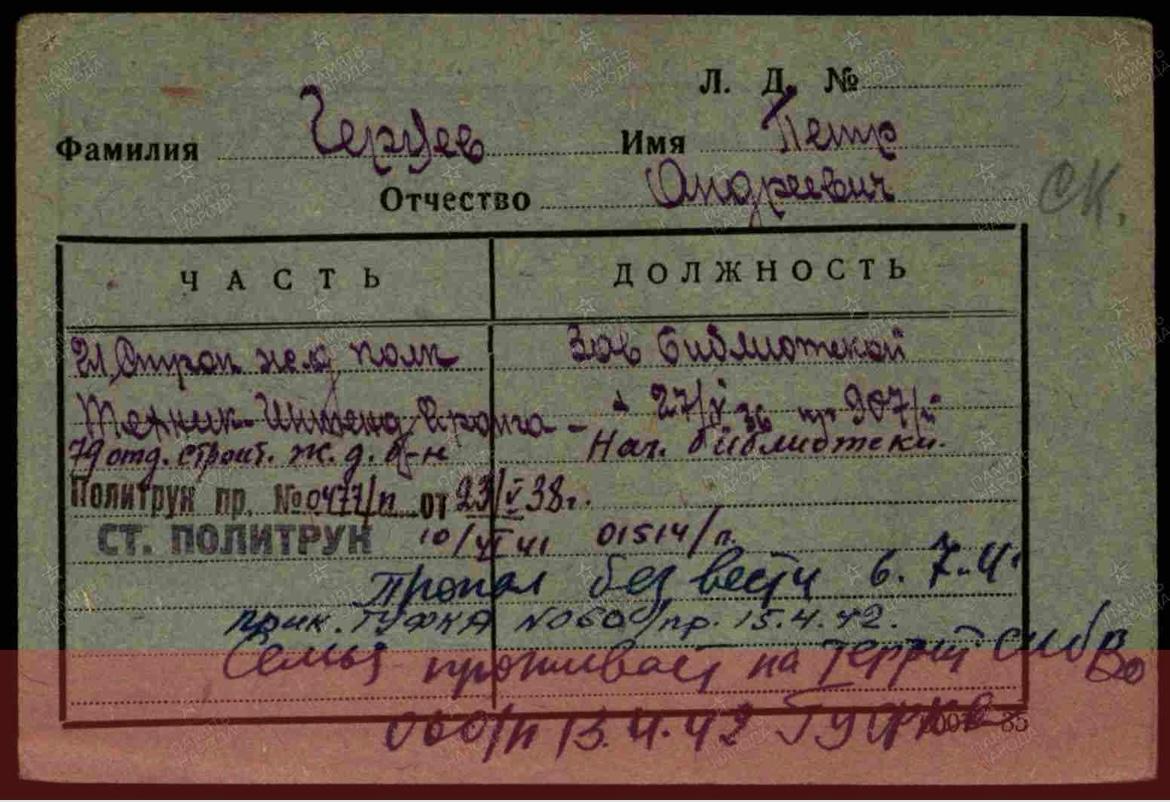 Л. Д. №
Фамилия Герцев Имя Петр
Отчество Андреевич
СК.
ЧАСТЬ ДОЛЖНОСТЬ
21 Строп жел полк Зав библиотекой
Техник-Интенд. I ранга - 27/V 36 пр 907/п
79 отд. строит. ж. д. б-н Нач. библиотеки.
Политрук пр. №0477/п от 23/V 38г.
СТ. ПОЛИТРУК 10/VI 41 01514/п.
Пропал без вести 6. 7.41
прик. ГУФКА №060/пр. 15.4.42.
Семья проживает на террит СибВо
060/п 13.4.42 ГУФКА